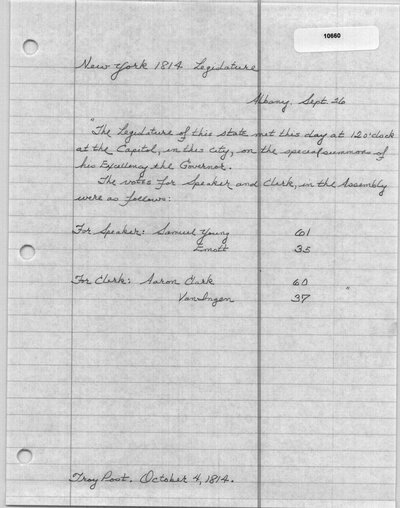 10660
New York 1814 Legislature
Albany, Sept 26
"The Legislature of this state met this day at 12 o'clock
at the Capitol, in this city, on the special summons of
his Excellency the Governor.
The votes for Speaker and Clerk, in the Assembly
were as follows:
For Speaker: Samuel Young 61
Emott 35
For Clerk: Aaron Clark 60
Van Ingen 37 "
Troy Post. October 4, 1814.